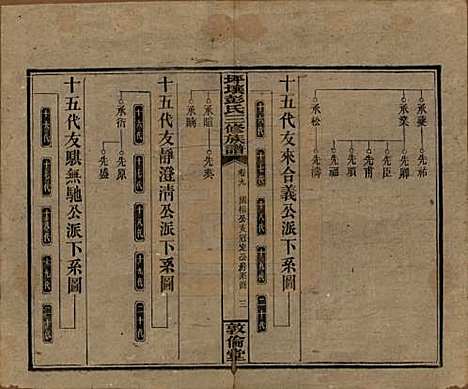 承藜
先祁
承業
先卿
先臣
先甫
先福
先順
承松
先濤
十五代友來合義公派下系圖
十六代
十七代
十八代
十九代
二十代
坪壤彭氏三修族譜
卷九
敦倫堂
承暄
先奏
承晴
十五代友靜澄清公派下系圖
十六代
十七代
十八代
十九代
二十代
承衍
先原
先盛
十五代友騏無馳公派下系圖
十六代
十七代
十八代
十九代
二十代